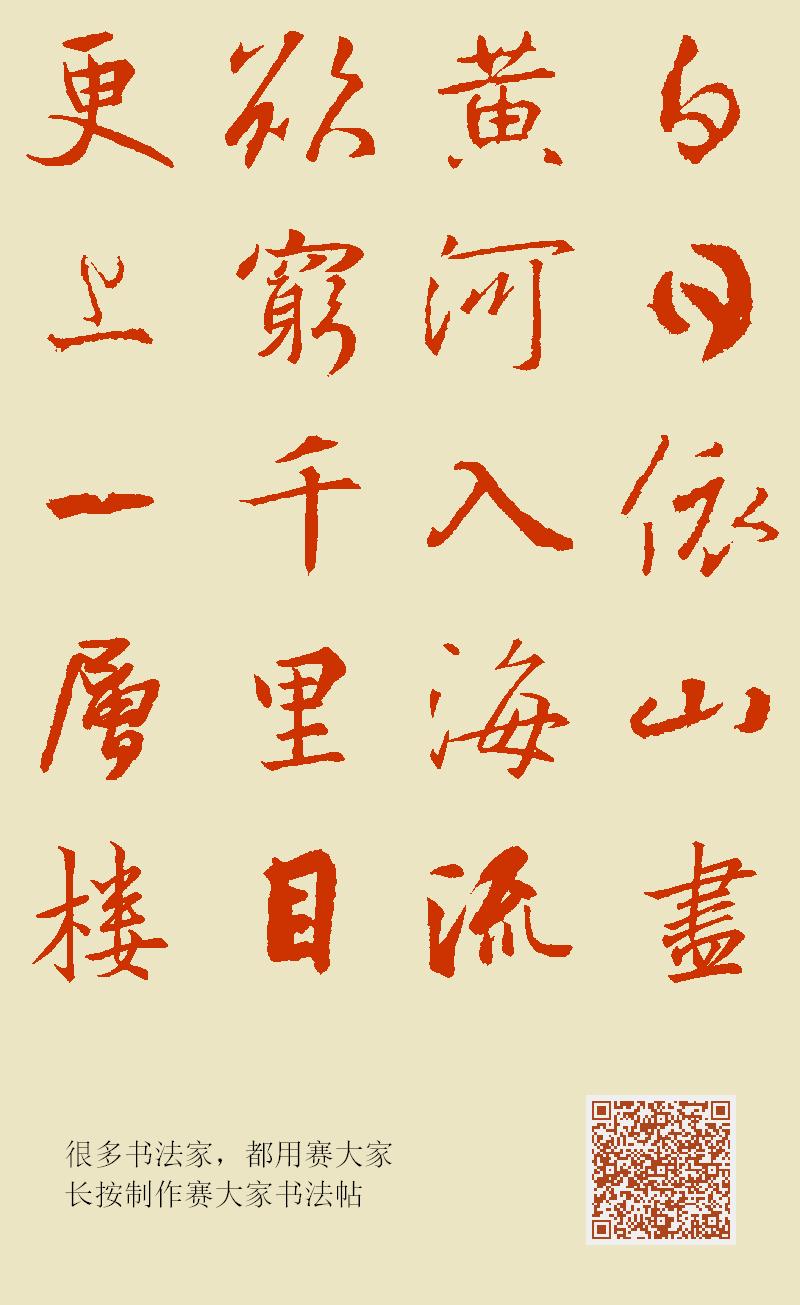 白日依山盡
黄河入海流
欲窮千里目
更上一層楼
很多书法家，都用赛大家
长按制作赛大家书法帖